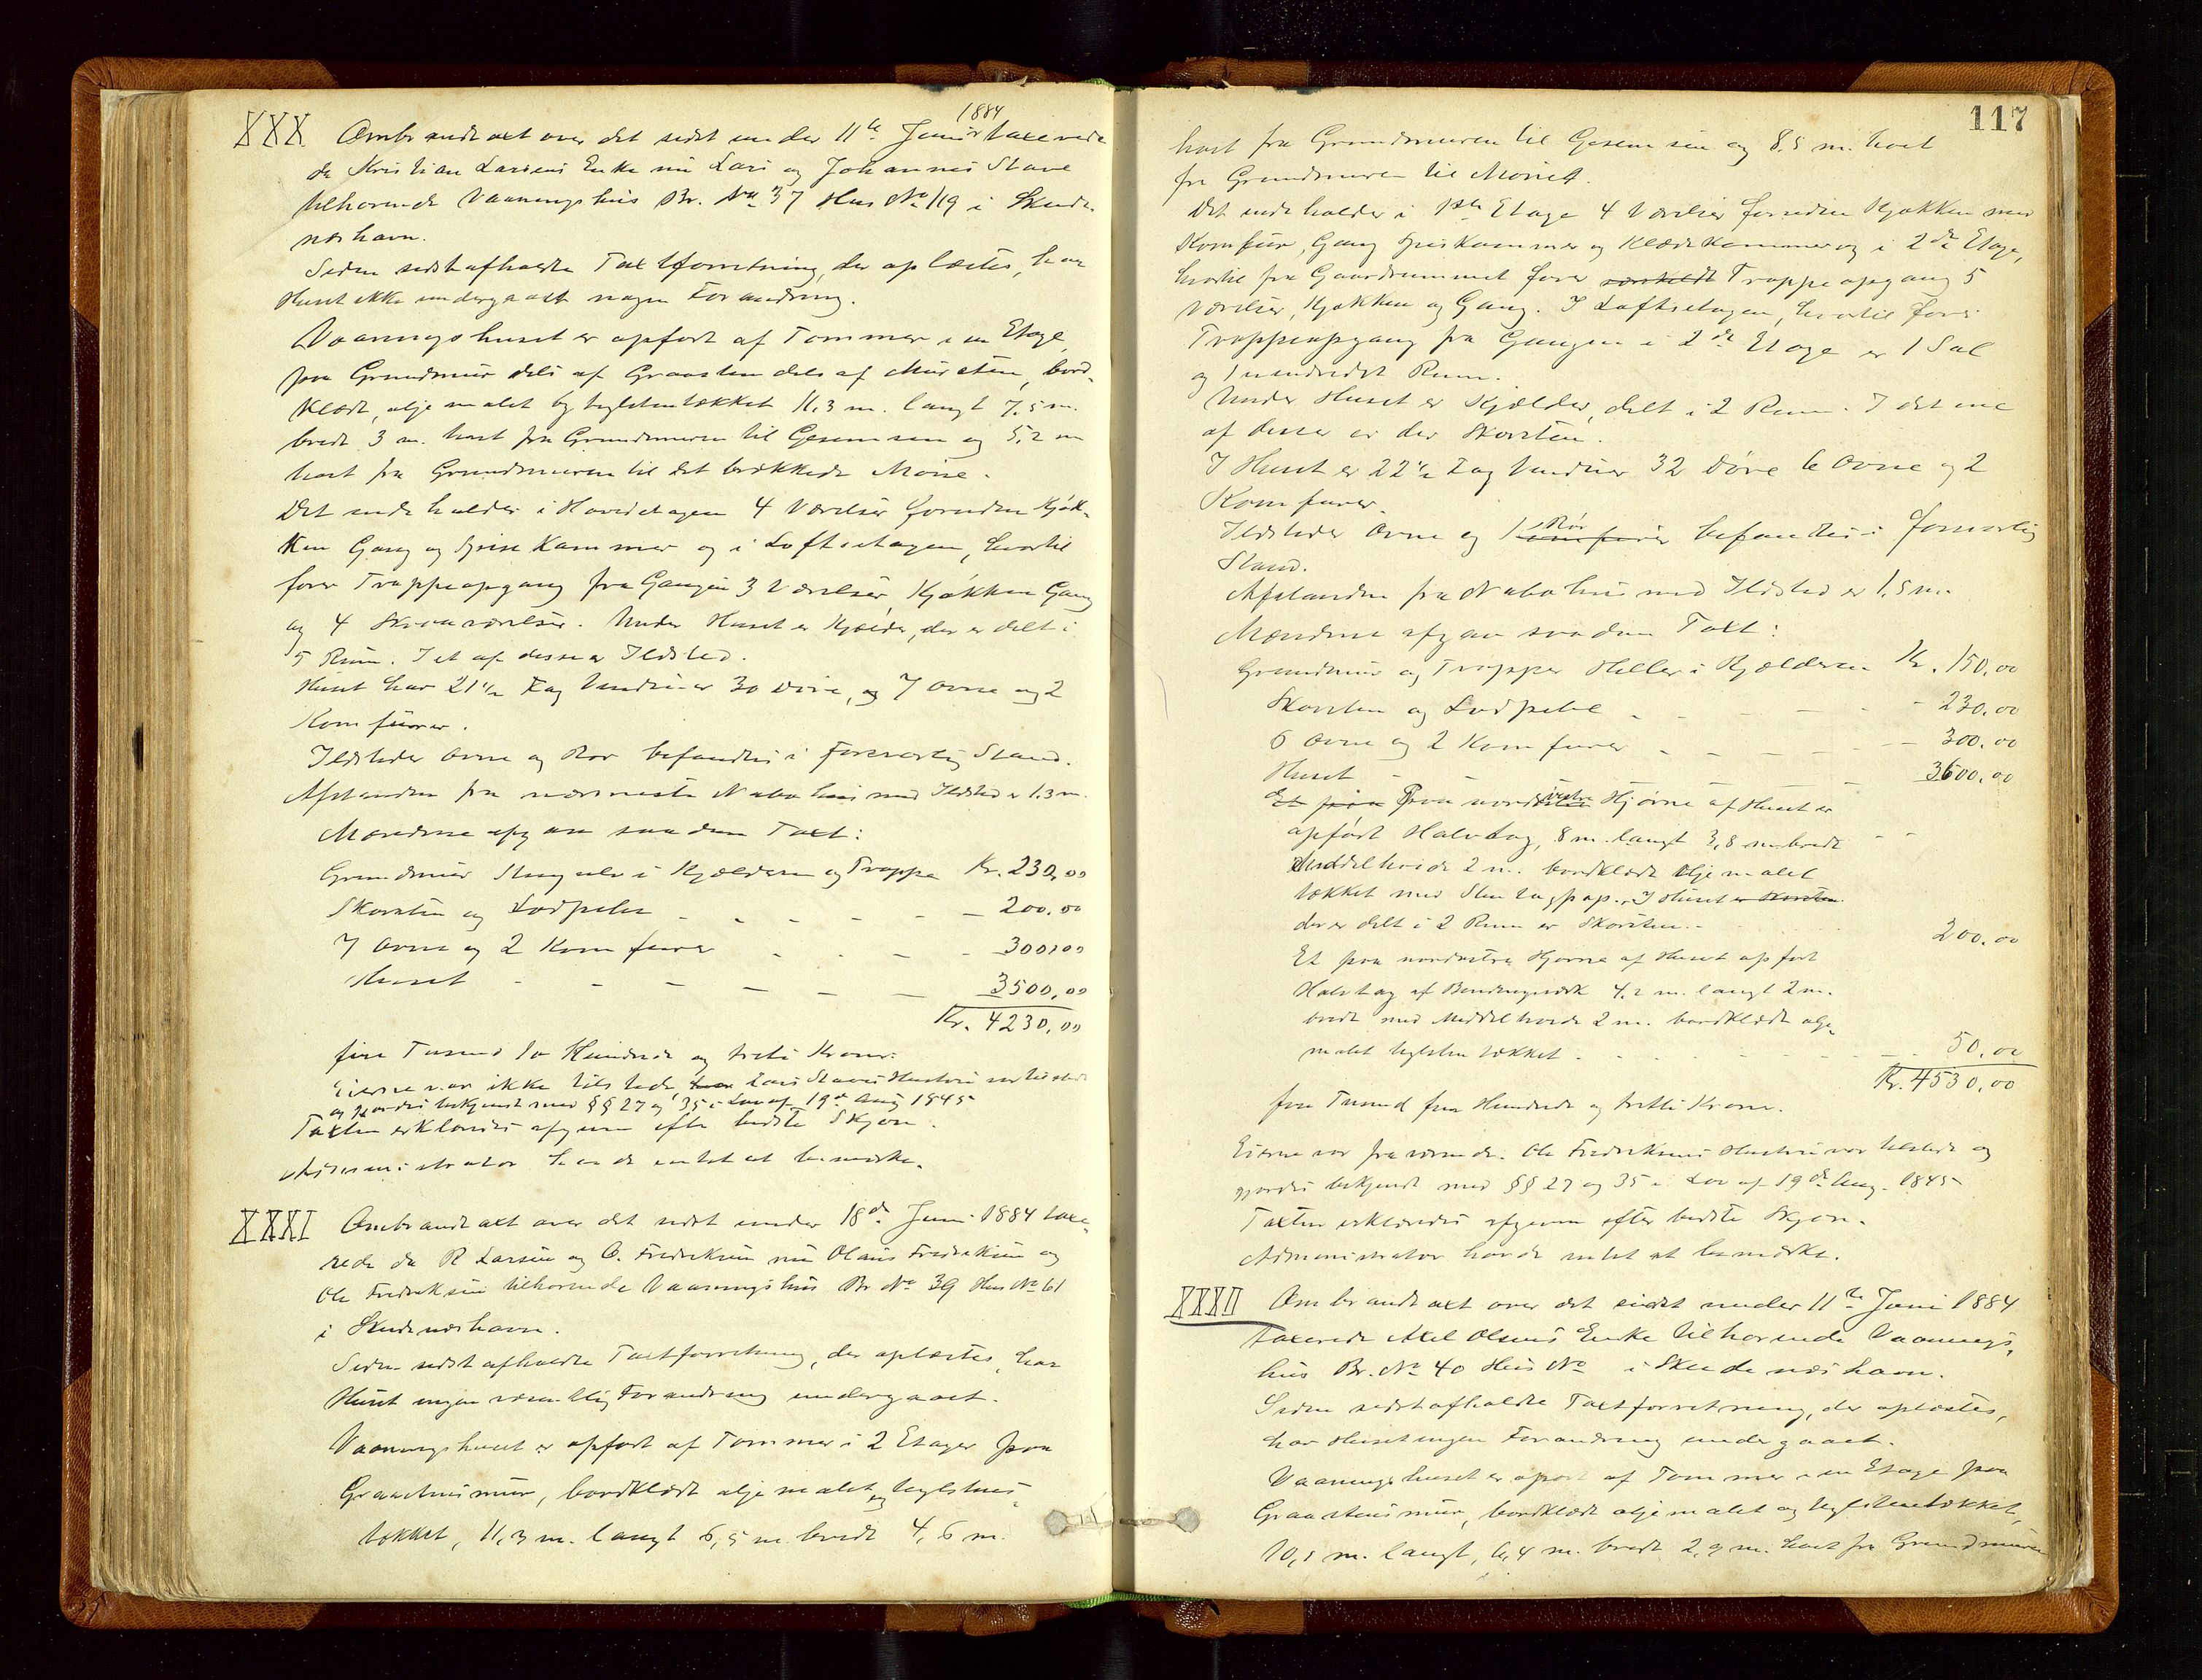 XXX Ombrandtaxt over det sidst under 11te Juni 1884 taxerede
da Kristian Larsens Enke nu Lars og Johannes Stave
tilhørende Vaaningshus Br. No 37 Hus No 119 i Skudes-
neshavn.
Siden sidst afholdte Taxtforretning, der oplæstes, har
Huset ikke undergaaet nogen Forandring.
Vaaningshuset er opført af Tømmer i en Etage,
paa Grundmur dels af Graasten dels af Mursten, bord-
klædt, oljemalet og teglstentækket 11,3 m. langt 7,5 m.
bredt 3 m. høit fra Grundmuren til Gesemsen og 5,2 m
høit fra Grundmuren til det brækkede Møne.
Det indeholder i Hovedetagen 4 Værelser foruden Kjøk-
ken Gang og Spisekammer og i Loftsetagen, hvortil
fører Trappeopgang fra Gangen 3 Værelser, Kjøkken Gang
og 4 Skraaværelser. Under Huset er Kjælder, der er delt i
5 Rum. I et af disse er Ildsted.
Huset har 21 1/2 Fag Vinduer 30 Døre, og 7 Ovne og 2
Komfurer.
Ildsteder Ovne og Rør befandtes i forsvarlig Stand.
Afstanden fra nærmeste Nabohus med Ildsted er 1.3 m.
Mændene afgav saadan Taxt:
Grundmur Stengulv i Kjælderen og Trappe Kr. 230,00
Skorsten og Lodpibe - - - - - 200.00
7 Ovne og 2 Komfurer - - - - 300,00
Huset - - - - - - 3500,00
Kr. 4230,00
fire Tusend to Hundrede og treti Kroner.
Eierne var ikke tilstede, Lars Staves Hustru var tilstede
og gjordes bekjendt med §§ 27 og 35 i Lov af 19de Aug 1845
Taxten erklæredes afgiven efter bedste Skjøn.
Administrator havde intet at bemærke.
XXXI Ombrandtaxt over det sidst under 18de Juni 1884 taxe-
rede da R Larsen og O. Fredriksen nu Olaus Fredriksen og
Ole Fredriksen tilhørende Vaaningshus Br No 39 Hus No 61
i Skudesneshavn.
Siden sidst afholdte Taxtforretning, der oplæstes, har
Huset ingen væsentlig Forandring undergaaet.
Vaaningshuset er opført af Tømmer i 2 Etager paa
Graastensmur, bordklædt oljemalet og teglstens-
tækket, 11,3 m. langt 6,5 m. bredt 4,6 m.
117
høit fra Grundmuren til Gesemsen og 8.5 m. høit
fra Grundmuren til Mønet.
Det indeholder i 1ste Etage 4 Værelser foruden Kjøkken med
Komfur, Gang Spiskammer og Klædekammer og i 2de Etage,
hvortil fra Gaardsrummet fører særskildt Trappeopgang 5
Værelser, Kjøkken og Gang. I Loftsetagen, hvortil fører
Trappeopgang fra Gangen i 2de Etage er 1 Sal
og 1 uindredet Rum.
Under Huset er Kjælder, delt i 2 Rum. I det ene
af disse er der Skorsten.
I Huset er 22 1/2 Fag Vinduer 32 Døre 6 Ovne og 2
Komfurer.
Ildsteder Ovne og Rør befandtes i forsvarlig
Stand.
Afstanden fra Nabohus med Ildsted er 1.5 m.
Mændene afgav saadan Taxt:
Grundmur og Trapper Heller i Kjælderen Kr. 150,00
Skorsten og Lodpibe - - - - - 230.00
6 Ovne og 2 Komfurer - - - - - 300.00
Huset - - - - - 3600,00
Et paa Paa nordvestre Hjørne af Huset er
opført Halvtag, 8 m. langt 3,8 m bredt - -
Middelhøide 2 m. bordklædt oljemalet
tækket med Stentagpap. I Huset er Skorsten
der er delt i 2 Rum er Skorsten. - 200.00
Et paa nordøstre Hjørne af Huset opført
Halvtag af Bindingsværk 4.2 m. langt 2 m.
bredt med Middelhøide 2 m. bordklædt olje-
malet teglstentækket - - - - - 50.00
Kr. 4530,00
fire Tusend fem Hundrede og tretti Kroner.
Eierne var fraværende. Ole Fredriksens Hustru var tilstede og
gjordes bekjendt med §§ 27 og 35 i Lov af 19de Aug. 1845
Taxten erklæredes afgiven efter bedste Skjøn.
Administrator havde intet at bemærke.
XXXII Ombrandtaxt over det sidst under 11te Juni 1884
taxerede Axel Olsens Enke tilhørende Vaanings-
hus Br. No 40 Hus No i Skudesneshavn.
Siden sidst afholdte Taxtforretning, der oplæstes,
har Huset ingen Forandring undergaaet.
Vaaningshuset er opført af Tømmer i en Etage paa
Graastensmur, bordklædt oljemalet og teglstentækket,
10,1 m. langt, 6,4 m. bredt 2,9 m. høit fra Grundmuren